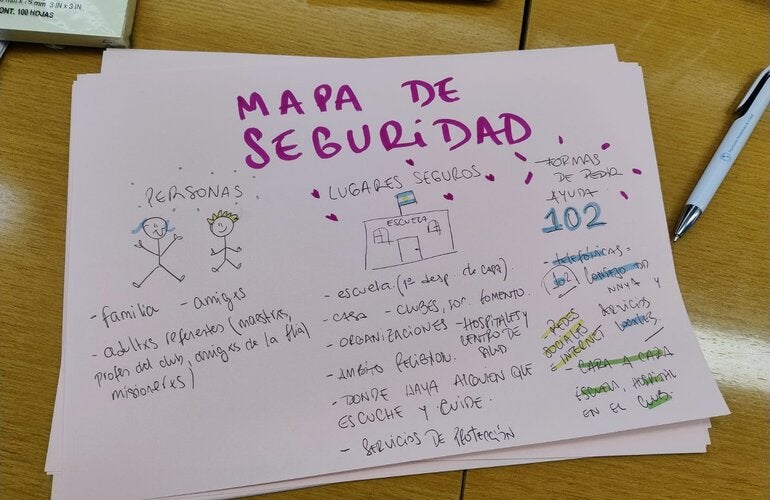 3 IN x 3 IN
CONT. 100 HOJAS
MAPA DE
SEGURIDAD
PERSONAS
- familia - amigxs
- adultxs referentes (maestras,
profen del club, amigxs de la flia)
missionerxs)
LUGARES SEGUROS
ESCUELA
- escuela. (1º desp. de casa)
- CASA - CLUBES, SOC. FOMENTO.
- ORGANIZACIONES - HOSPITALES Y
CENTRO DE
SALUD
- ÁMBITO RELIGION.
- DONDE HAYA ALGUIEN QUE
ESCUCHE Y CUIDE.
- SERVICIOS DE PROTECCIÓN
FORMAS
DE PEDIR
AYUDA
102
- telefónicas =
102 Consejo DD
NNYA Y
SERVICIOS
locales.
- REDES
SOCIALES
INTERNET
- CARA A CARA
ESCUELA, HOSPITAL
EN EL CLUB.